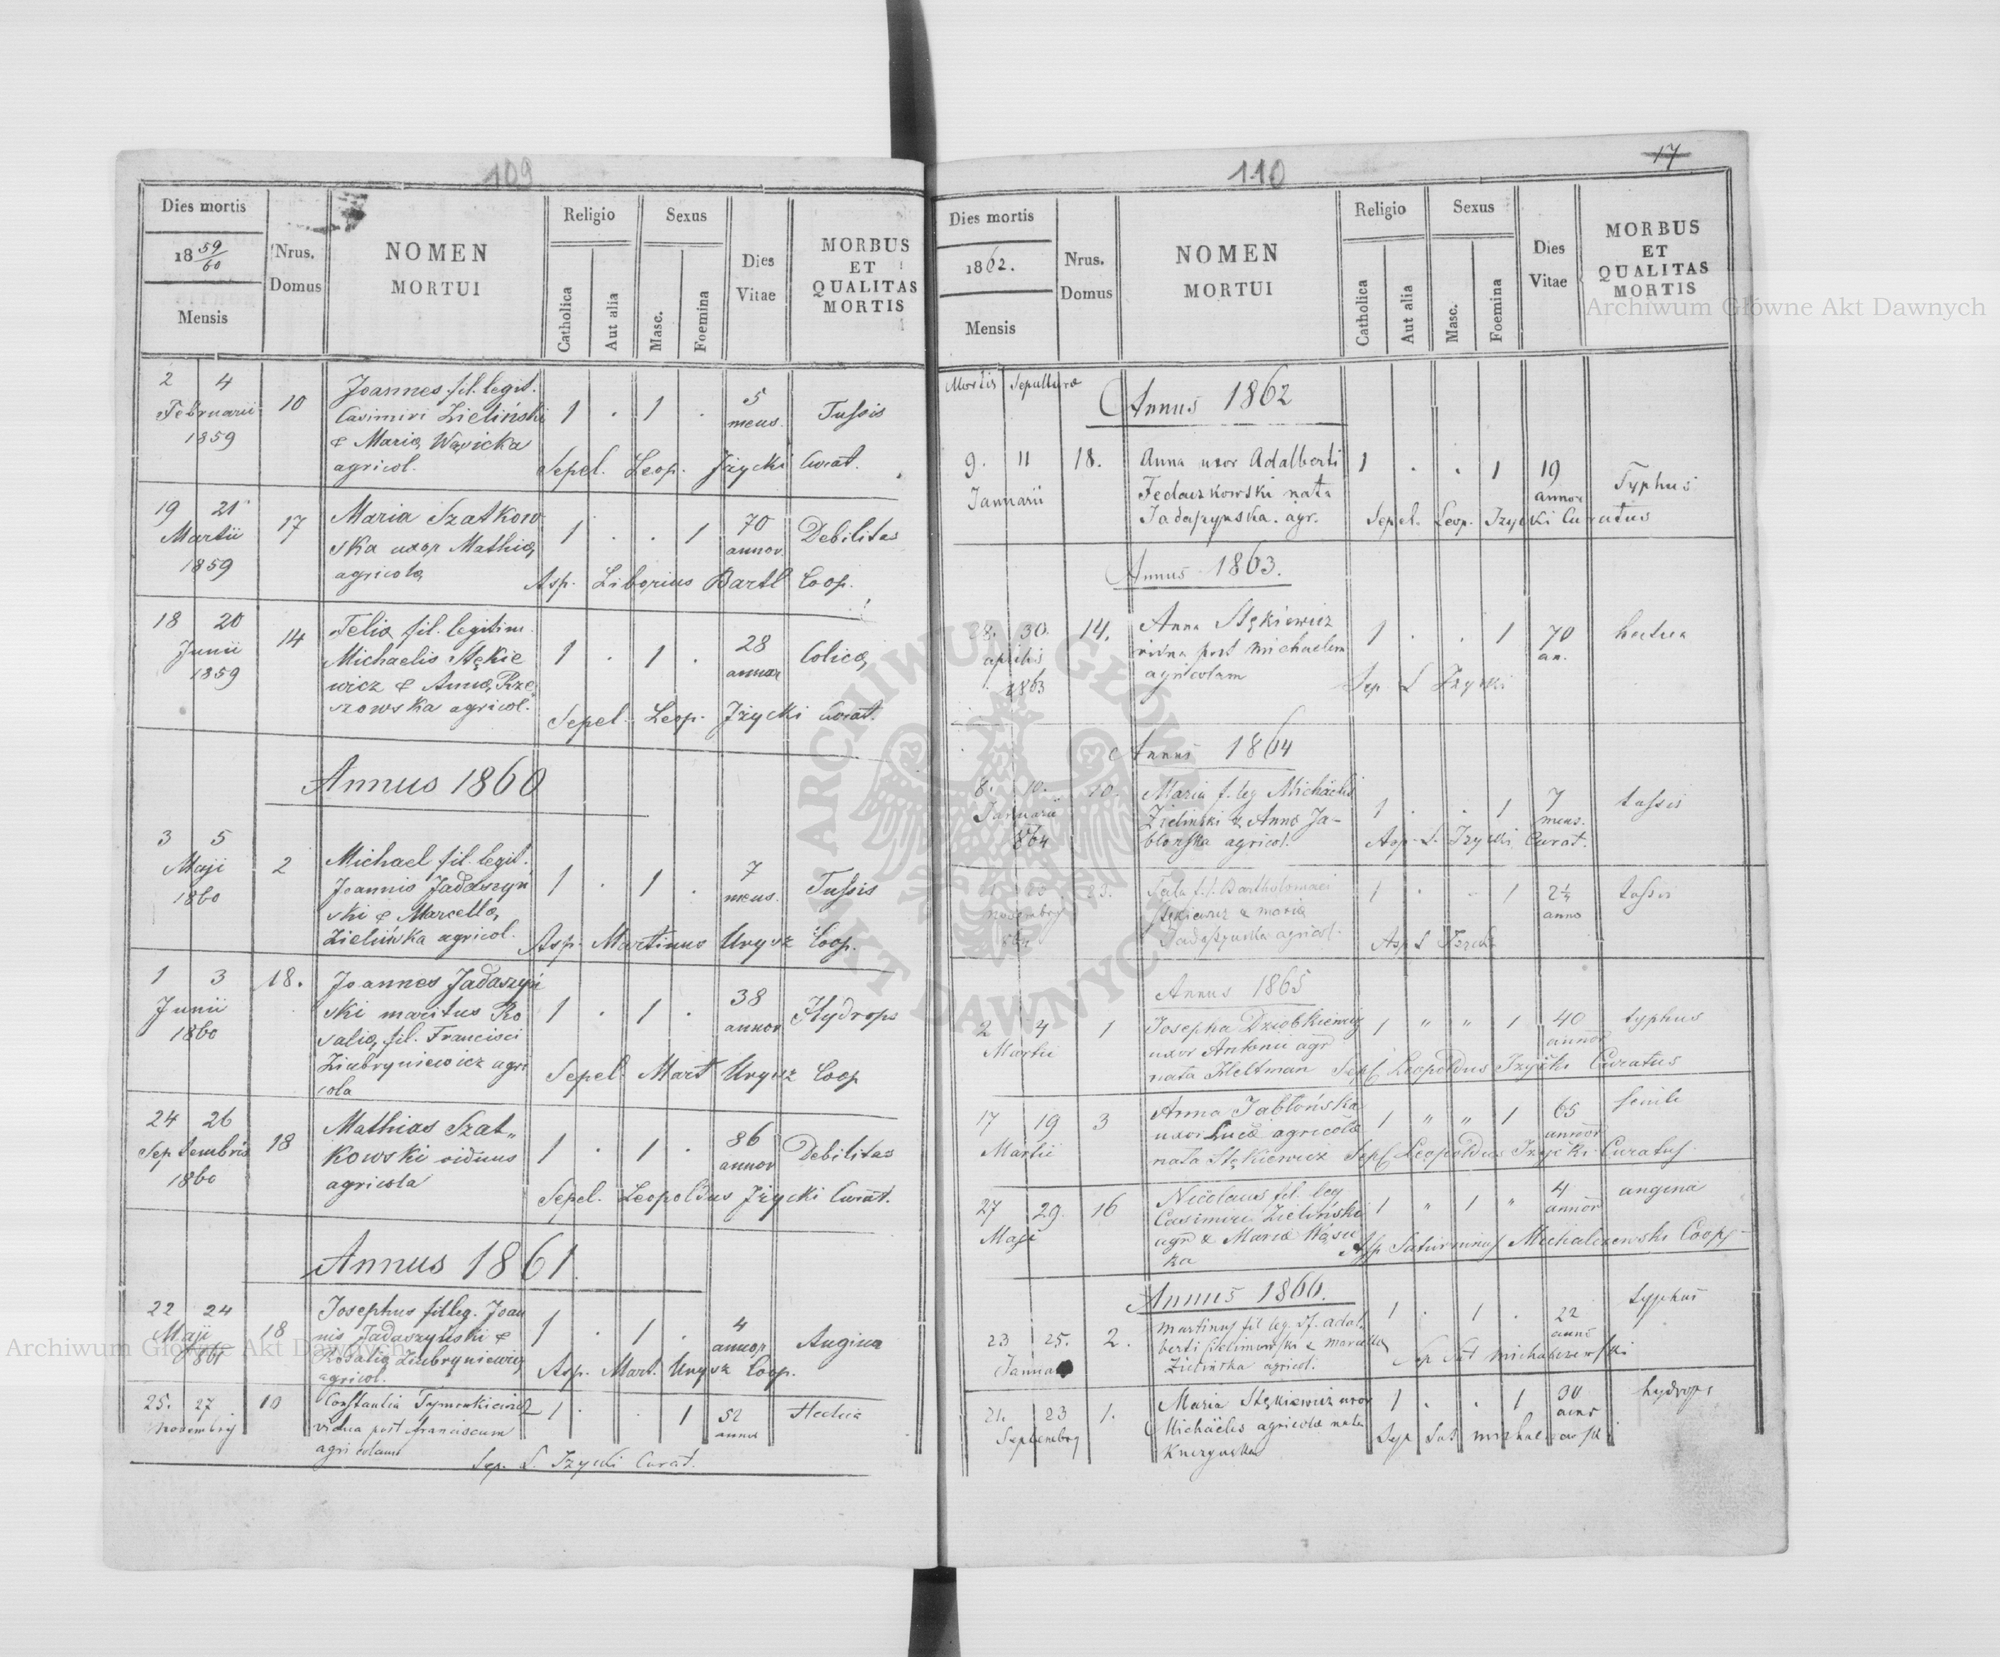 109
Dies mortis
18 59/60
Mensis
Nrus.
Domus
NOMEN
MORTUI
Religio
Catholica
Aut alia
Sexus
Masc.
Foemina
Dies
Vitae
MORBUS
ET
QUALITAS
MORTIS
2 4
Februarii
1859
10
Joannes fil. legit.
Casimiri Zieliński
& Maria Wąsicka
agricol.
1 . 1 .
5
mens.
Tussis
Sepel. Leop. Jżycki Curat.
19 21
Martii
1859
17
Maria Szatkow
ska uxor Mathiæ
agricolæ
1 . . 1
70
annor.
Debilitas
Asp. Liborius Bartl Coop.
18 20
Junii
1859
14
Felix fil. legitim.
Michaelis Stękie
wicz & Anna Rze
szowska agricol.
1 . 1 .
28
annor
Colica
Sepel. Leop. Jżycki Curat.
Annus 1860
3 5
Maji
1860
2
Michael fil. legit.
Joannis Jadaszyń
ski & Marcella
Zielińska agricol.
1 . 1 .
7
mens.
Tussis
Asp. Martinus Urysz Coop.
1 3
Junii
1860
18.
Joannes Jadaszyń
ski maritus Ro
saliæ fil. Francisci
Ziubryniewicz agri
cola
1 . 1 .
38
annor
Hydrops
Sepel. Mart Urysz Coop
24 26
Septembris
1860
18
Mathias Szat„
kowski viduus
agricola
1 . 1 .
86
annor
Debilitas
Sepel. Leopoldus Jżycki Curat.
Annus 1861
22 24
Maji
1861
18
Josephus fil leg. Joan
nis Jadaszyński &
Rosalia Ziubryniewicz
agricol.
1 . 1 .
4
annor
Angina
Asp. Mart. Urysz Coop.
25. 27
Novembris
10
Constantia Tymenkiewicz
vidua post franciscum
agricolam
1 . . 1
52
annor
Hectica
Sep. L. Izycki Curat.
110
17
Dies mortis
1862.
Mensis
Nrus.
Domus
NOMEN
MORTUI
Religio
Catholica
Aut alia
Sexus
Masc.
Foemina
Dies
Vitae
MORBUS
ET
QUALITAS
MORTIS
Mortis Sepulturæ
Annus 1862
9. 11
Januarii
18.
Anna uxor Adalberti
Fedaczkowski nata
Jadaszynska. agr.
1 . . 1
19
annor
Typhus
Sepel. Leop. Izycki Curatus
Annus 1863.
28. 30.
aprilis
1863
14.
Anna Stękiewicz
vidua post Michaelem
agricolam
1 . . 1
70
an.
hectica
Sep. L Izycki
Annus 1864
8. 10.
Januarii
1864
10.
Maria f. leg Michäelis
Zielinski & Anna Ja-
blonska agricol.
1 . . 1
7
mens.
tussis
Asp. L. Izycki Curat.
Novembris
23.
f. l. Bartholomaei
Stękiewicz & Maria
Jadaszynska agricol.
1 . - 1
2½
anno
tussis
Asp L Izycki
Annus 1865
2 4
Martii
1
Josepha Dziobkiewicz
uxor Antonii agr
nata Heltman
1 " " 1
40
annor
typhus
Sep. Leopoldus Izycki Curatus
17 19
Martii
3
Anna Jabłońska
uxor Lucæ agricolæ
nata Stękiewicz
1 " " 1
65
annor
senile
Sep. Leopoldus Izycki Curatus
27 29.
Maji
16
Nicolaus fil. leg
Casimiri Zieliński
agr & Maria Wąsic
ka
1 " 1 "
4
annor
angina
Asp Saturninus Michalczewski Coop
Annus 1866.
23 25.
Janua
2.
Martinus fil leg. Adal
berti & Marcella
Zielinska agricol.
1 . 1 .
22
anns
typhus
Sep Sat Michalczewski
21. 23
Septembris
1.
Maria Stękiewicz uxor
Michäelis agricolæ nata
1 . . 1
30
anns
hydrops
Sep Sat Michalczewski
Archiwum Główne Akt Dawnych
Archiwum Główne Akt Dawnych
ARCHIWUM GŁÓWNE AKT DAWNYCH